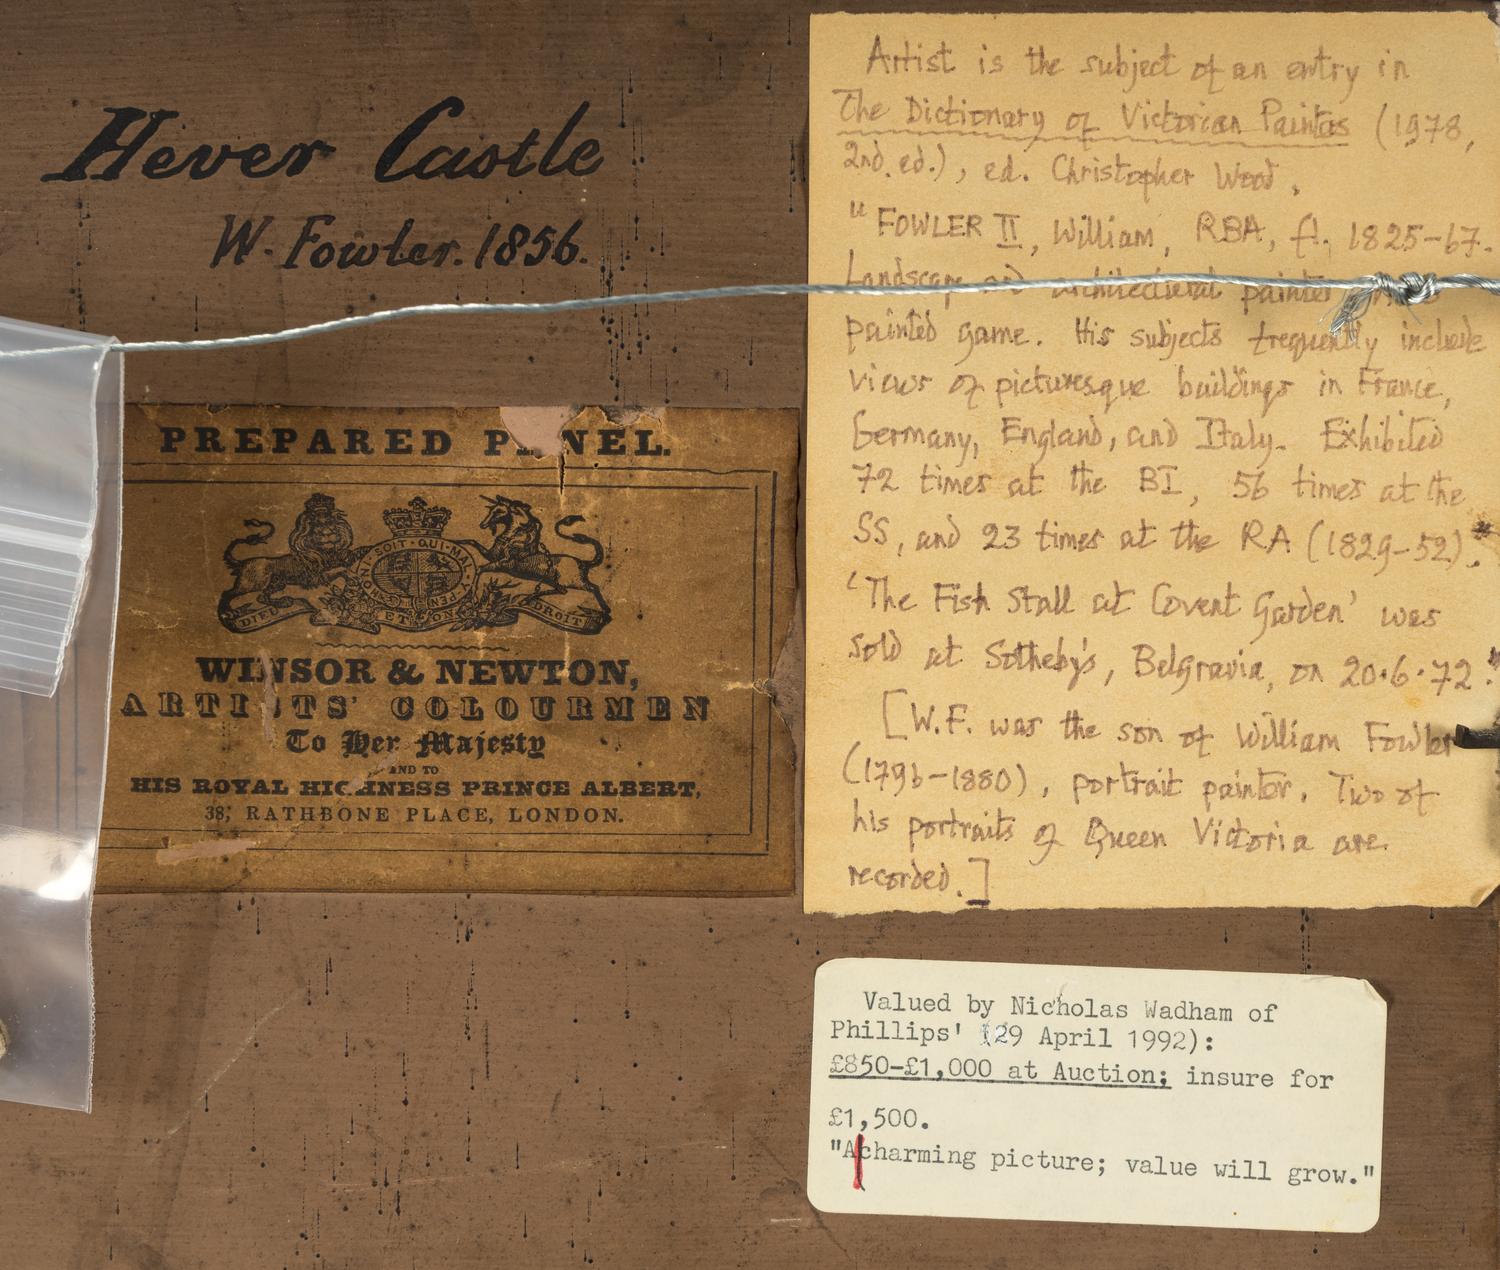 Hever Castle
W. Fowler. 1856.
PREPARED P NEL.
HONI·SOIT·QUI·MAL·Y·PEN
DIEU ET MON DROIT
WINSOR & NEWTON,
ARTISTS' COLOURMEN
To Her Majesty
AND TO
HIS ROYAL HIGHNESS PRINCE ALBERT,
38, RATHBONE PLACE, LONDON.
Artist is the subject of an entry in
The Dictionary of Victorian Painters (1978,
2nd. ed.), ed. Christopher Wood.
"FOWLER II, William, RBA, fl. 1825-67.
Landscape and architectural painter
painted game. His subjects frequently include
views of picturesque buildings in France,
Germany, England, and Italy. Exhibited
72 times at the BI, 56 times at the
SS, and 23 times at the RA (1829-52)."
'The Fish Stall at Covent Garden' was
sold at Sotheby's, Belgravia, on 20.6.72."
[W.F. was the son of William Fowler
(1796-1880), portrait painter. Two of
his portraits of Queen Victoria are
recorded.]
Valued by Nicholas Wadham of
Phillips' (29 April 1992):
£850-£1,000 at Auction; insure for
£1,500.
"A charming picture; value will grow."